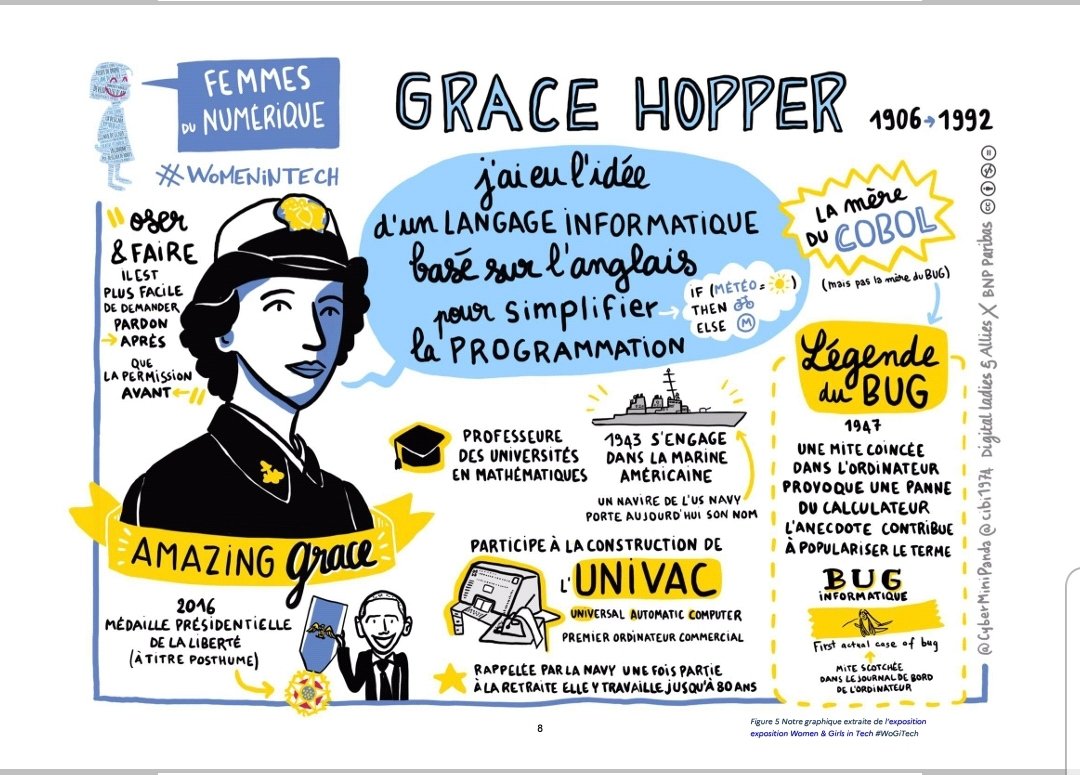 FEMMES
DU NUMÉRIQUE
#WOMENINTECH
GRACE HOPPER
1906→1992
"OSER
& FAIRE
IL EST
PLUS FACILE
DE DEMANDER
PARDON
→ APRÈS
QUE
LA PERMISSION
AVANT ←"
j'ai eu l'idée
d'un LANGAGE INFORMATIQUE
basé sur l'anglais
pour simplifier →
la PROGRAMMATION
IF (MÉTÉO = )
THEN
ELSE M
LA mère
DU COBOL
(mais pas la mère du BUG)
Légende
du BUG
1947
UNE MITE COINCÉE
DANS L'ORDINATEUR
PROVOQUE UNE PANNE
DU CALCULATEUR
L'ANECDOTE CONTRIBUE
À POPULARISER LE TERME
BUG
INFORMATIQUE
First actual case of bug
MITE SCOTCHÉE
DANS LE JOURNAL DE BORD
DE L'ORDINATEUR
PROFESSEURE
DES UNIVERSITÉS
EN MATHÉMATIQUES
1943 S'ENGAGE
DANS LA MARINE
AMÉRICAINE
UN NAVIRE DE L'US NAVY
PORTE AUJOURD'HUI SON NOM
AMAZING grace
PARTICIPE À LA CONSTRUCTION DE
L'UNIVAC
UNIVERSAL AUTOMATIC COMPUTER
PREMIER ORDINATEUR COMMERCIAL
2016
MÉDAILLE PRÉSIDENTIELLE
DE LA LIBERTÉ
(À TITRE POSTHUME)
RAPPELÉE PAR LA NAVY UNE FOIS PARTIE
À LA RETRAITE ELLE Y TRAVAILLE JUSQU'À 80 ANS
@CyberMiniPanda @cibi1974 Digital ladies & Allies X BNP Paribas
8
Figure 5 Notre graphique extraite de l'exposition
exposition Women & Girls in Tech #WoGiTech